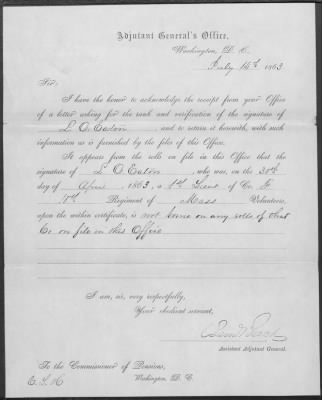 Adjutant General's Office,
Washington, D. C.
July 14th, 1863
Sir:
I have the honor to acknowledge the receipt from your Office
of a letter asking for the rank and verification of the signature of
L. O. Eaton, and to return it herewith, with such
information as is furnished by the files of this Office.
It appears from the rolls on file in this Office that the
signature of L O. Eaton, who was, on the 30th
day of April, 1863, a 1st Lieut of Co.
Regiment of Mass Volunteers,
upon the within certificate, is not borne on any rolls of that
Co on file in this Office
I am, sir, very respectfully,
Your obedient servant,
Assistant Adjutant General.
To the Commissioner of Pensions,
Washington, D. C.